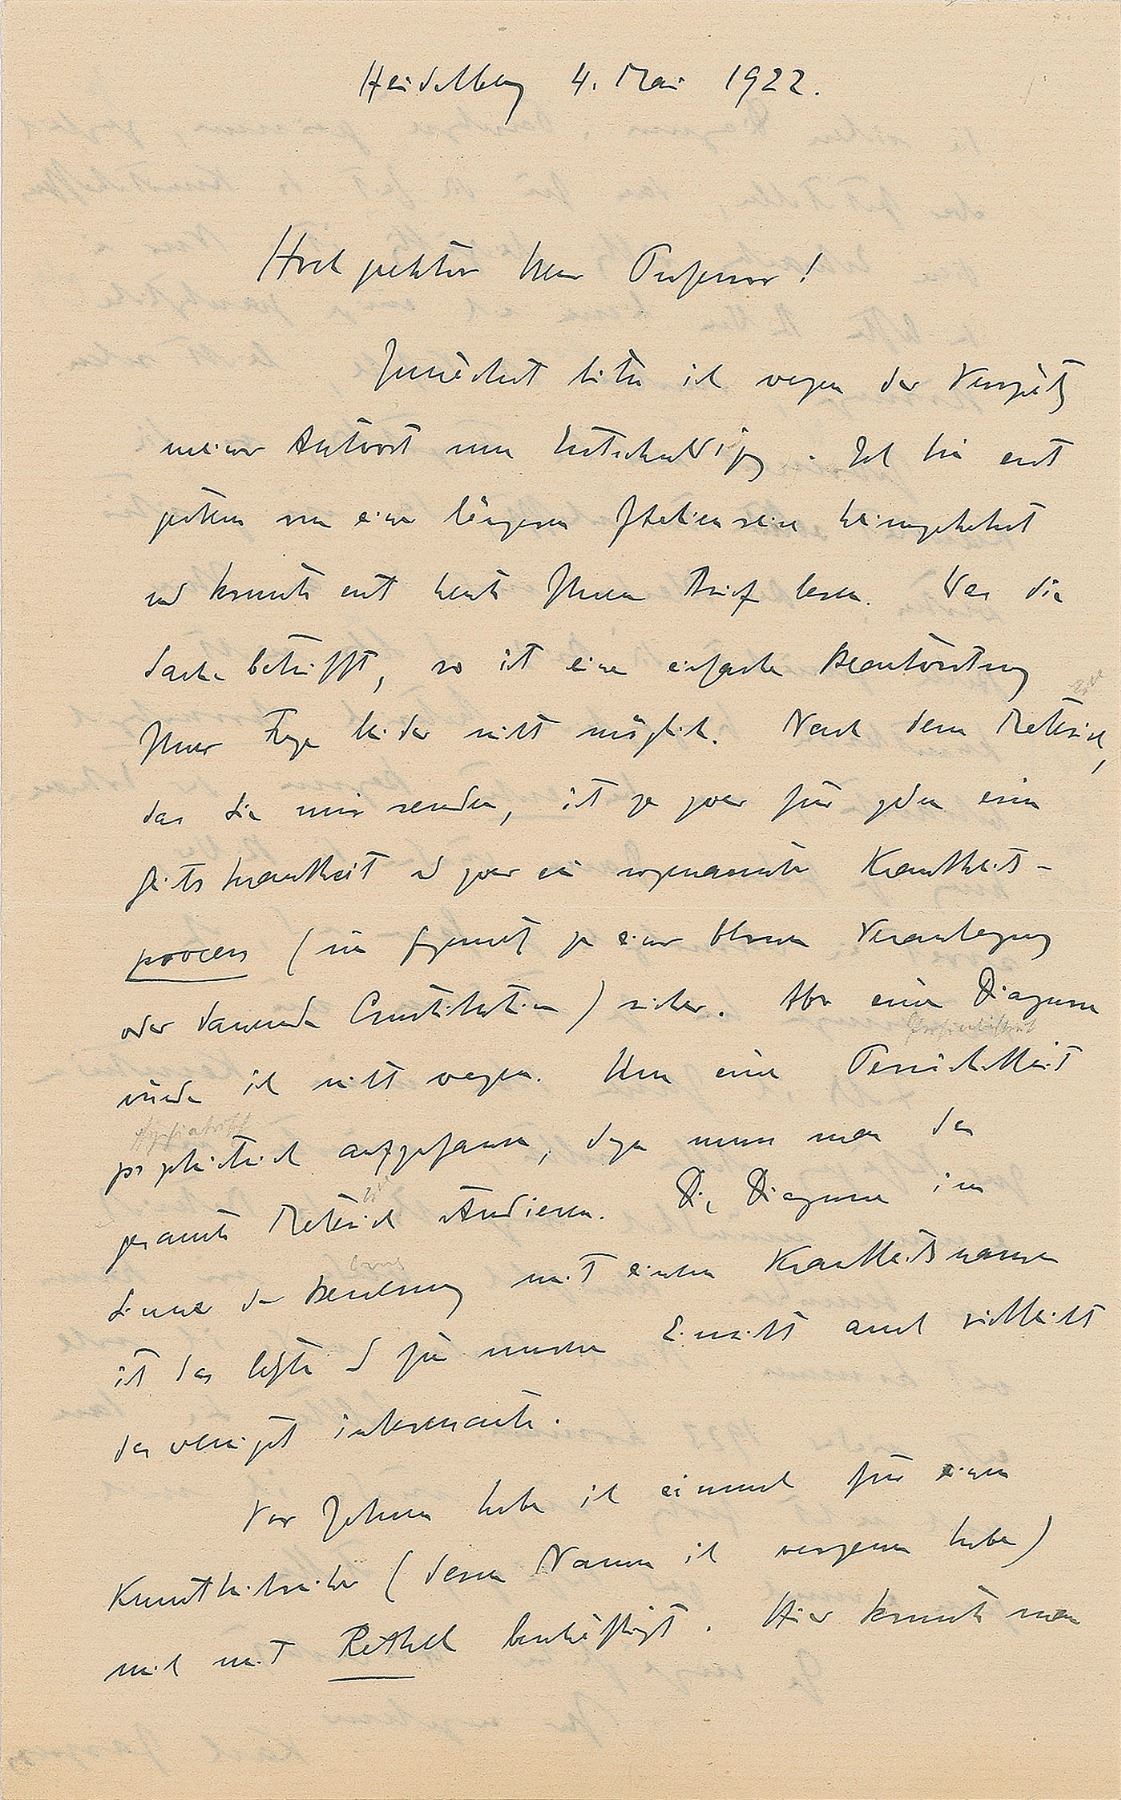 Heidelberg 4. Mai 1922.
Hochgeehrter Herr Professor!
Zunächst bitte ich wegen der Verspätg
meiner Antwort um Entschuldigg. Ich bin erst
gestern von einer längeren Italienreise heimgekehrt
und konnte erst heute Ihren Brief lesen. Was die
Sache betrifft, so ist eine einfache Beantwortung
Ihrer Frage leider nicht möglich. Nach dem Material,
das Sie mir senden, ist ja zwar für jeden eine
Geisteskrankheit u zwar ein sogenannter Krankheits-
process (im Gegensatz zu einer blossen Veranlagung
oder dauernden Constitution) sicher. Aber eine Diagnose
würde ich nicht wagen. Um eine Persönlichkeit
psychiatrisch aufzufassen, dazu muss man das
gesamte Material studieren. Die Diagnose im
Sinne der Benennung mit einem Krankheitsnamen
ist das letzte u für unsere Einsicht auch vielleicht
das wenigst interessante.
Vor Jahren habe ich einmal für einen
Kunsthistoriker (dessen Namen ich vergessen habe)
mich mit Rethel beschäftigt. Hier konnte man